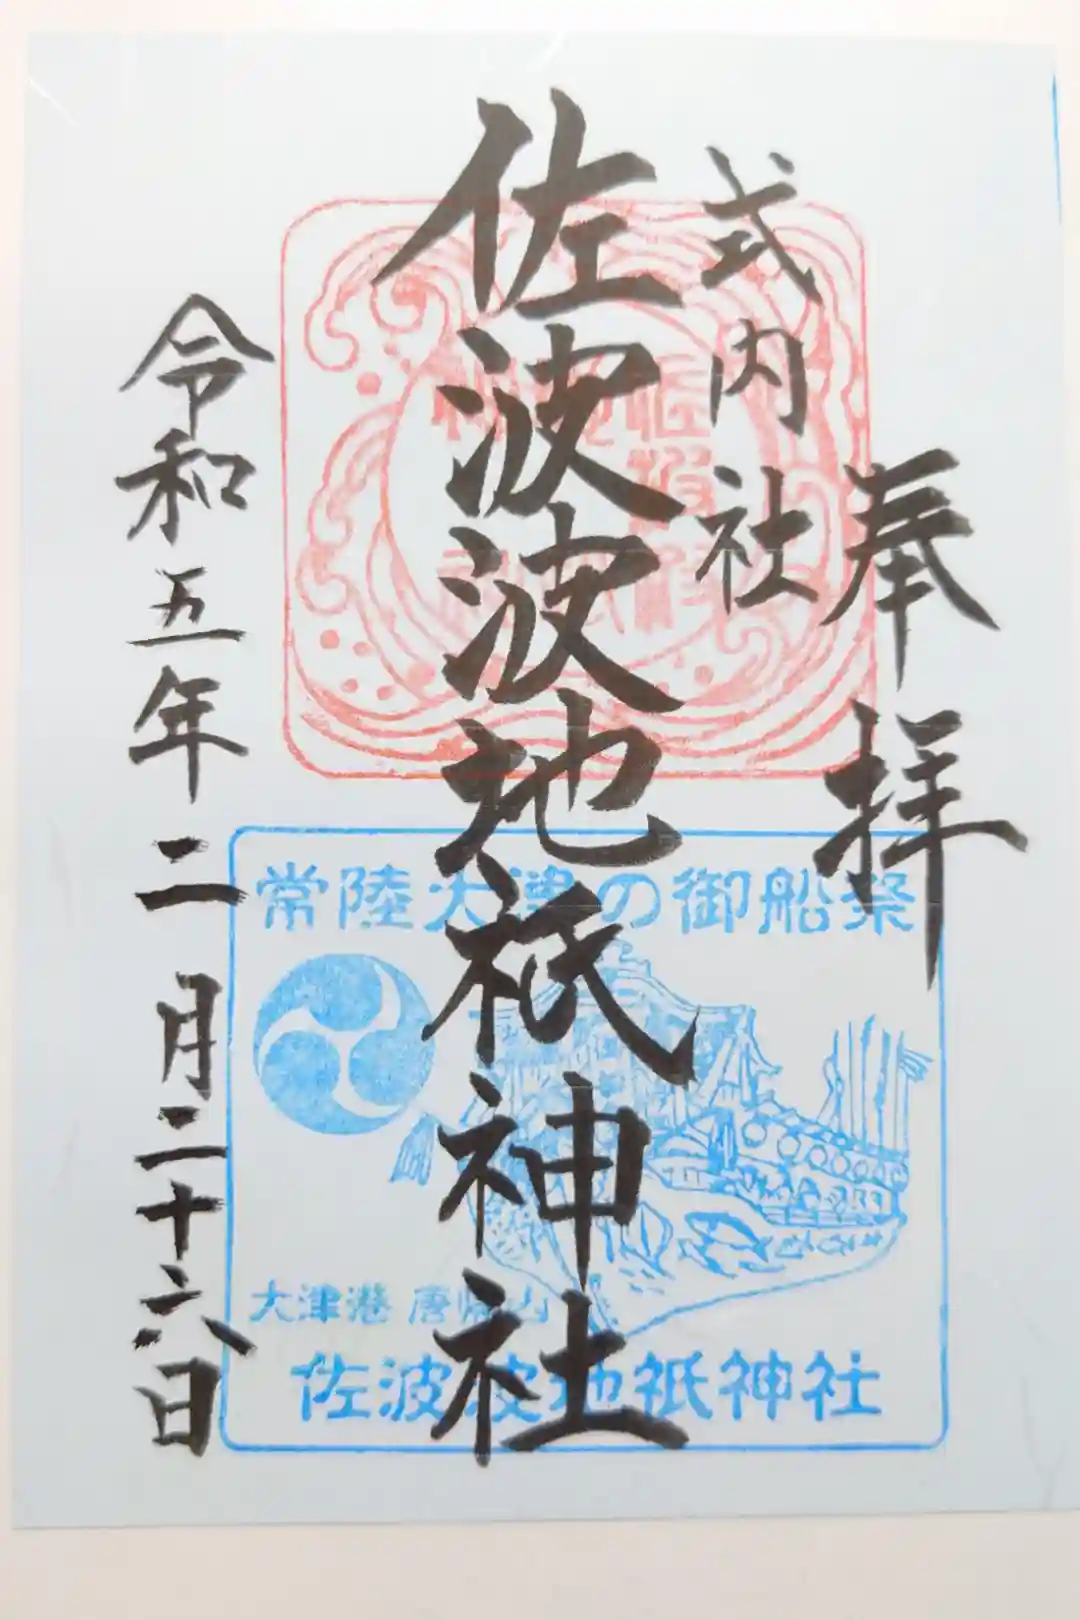 奉拝
式内社
佐波波地祇神社
令和五年二月二十六日
常陸大津の御船祭
大津港 唐帰山
佐波波地祇神社